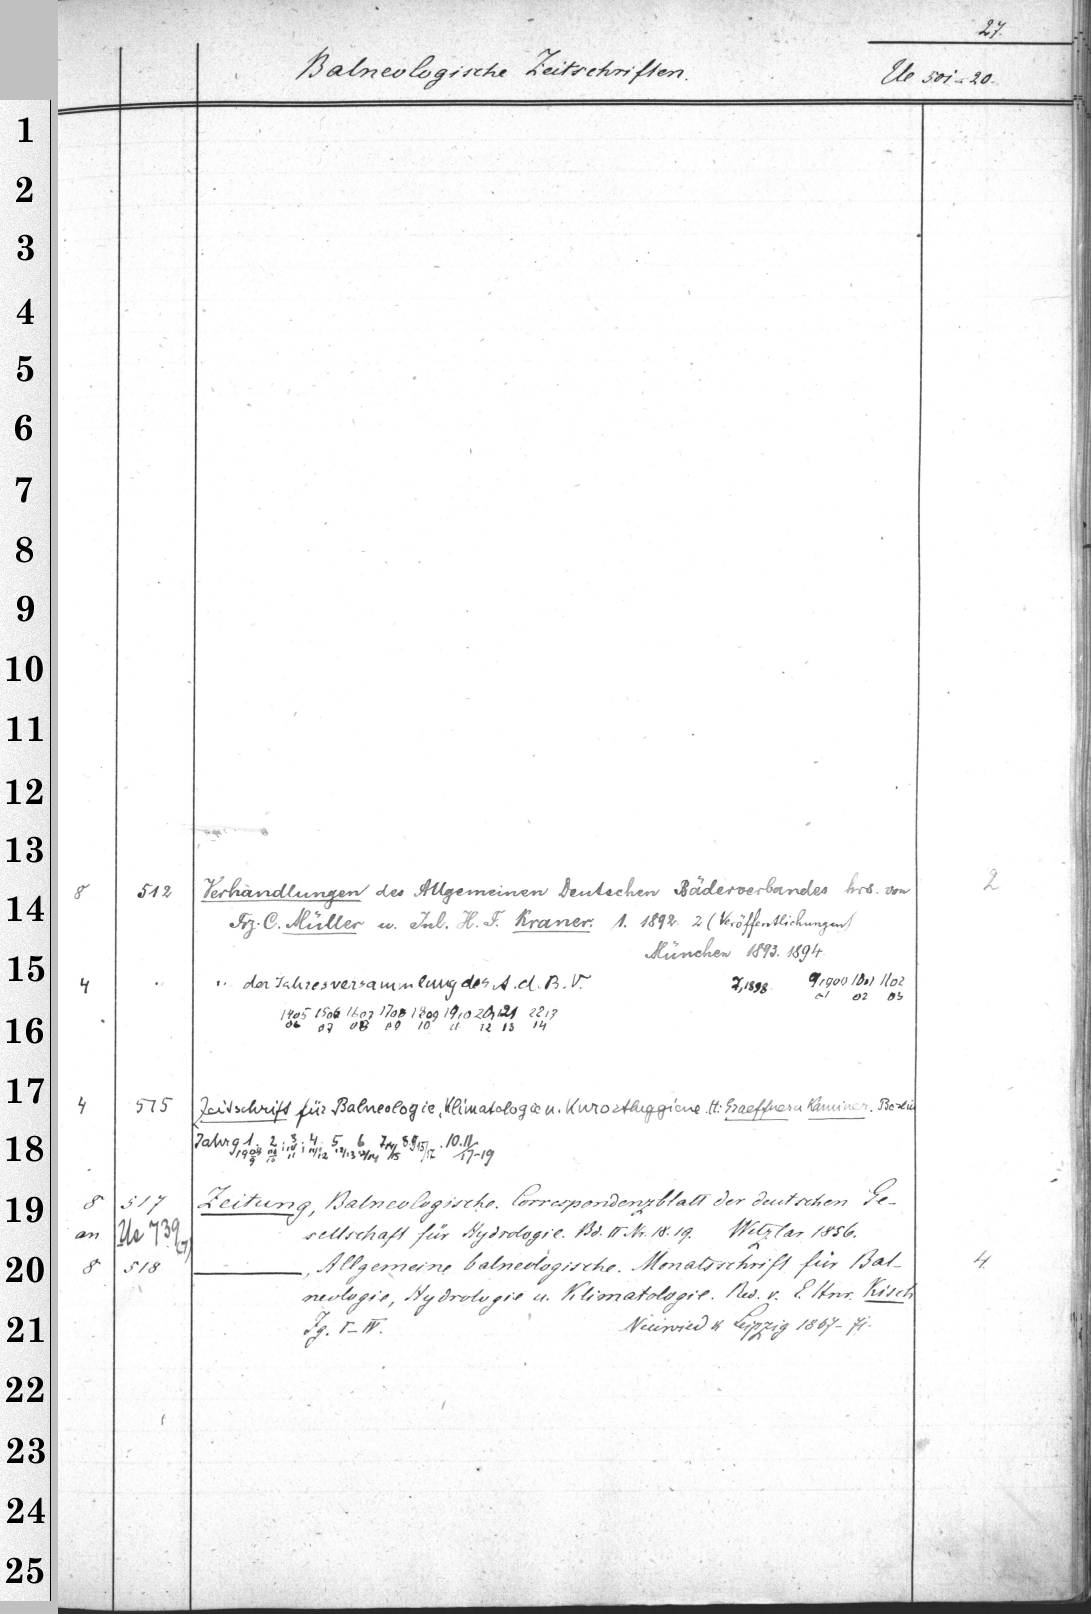 27.
Balneologische Zeitschriften. Ue 501-20.
1
2
3
4
5
6
7
8
9
10
11
12
13
8 512 Verhandlungen des Allgemeinen Deutschen Bäderverbandes hrs. von 2
14
Frz. C. Müller u. Jul. H. F. Kraner. 1. 1892. 2 (Veröffentlichungen)
München 1893. 1894
15
4 " " der Jahresversammlung des A. d. B. V. 7,1898 9,1900 1001 1102
01 02 03
1405 1506 1607 1708 1809 1910 20 21 2213
06 07 08 09 10 11 12 13 14
16
17
4 515 Zeitschrift für Balneologie, Klimatologie u. Kurorthygiene. H: Graeffner u Kaminer. Berlin
18
Jahrg 1. 2 3 4 5 6 10. 11
17-19
19
8 517 Zeitung, Balneologische. Correspondenzblatt der deutschen Ge-
an Ue 739 sellschaft für Hydrologie. Bd. II Nr. 18. 19. Wetzlar 1856.
20
8 518 , Allgemeine balneologische. Monatsschrift für Bal- 4
neologie, Hydrologie u. Klimatologie. Red. v. E. Hnr. Kisch
21
Jg. I-IV. Neuwied u Leipzig 1867-71.
22
23
24
25